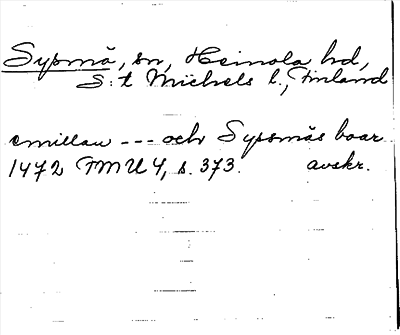 Sysmä, sn, Heinola hd,
S:t Michels l., Finland
emillan --- och Sysmäs boar
1472 FMU 4, s. 373. avskr.